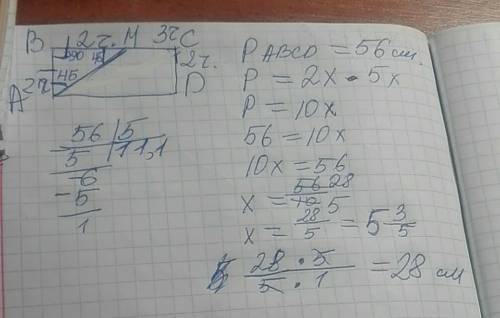 B 2ч. М 3ч C
90 45
2ч 45 2ч.
A D
56 | 5
5 | 11,1
6
- 5
1
P ABCD = 56 см.
P = 2x · 5x
P = 10x
56 = 10x
10x = 56
x = 56 28 / 10 5
x = 28 / 5 = 5 3/5
28 · 5 / 5 · 1 = 28 см